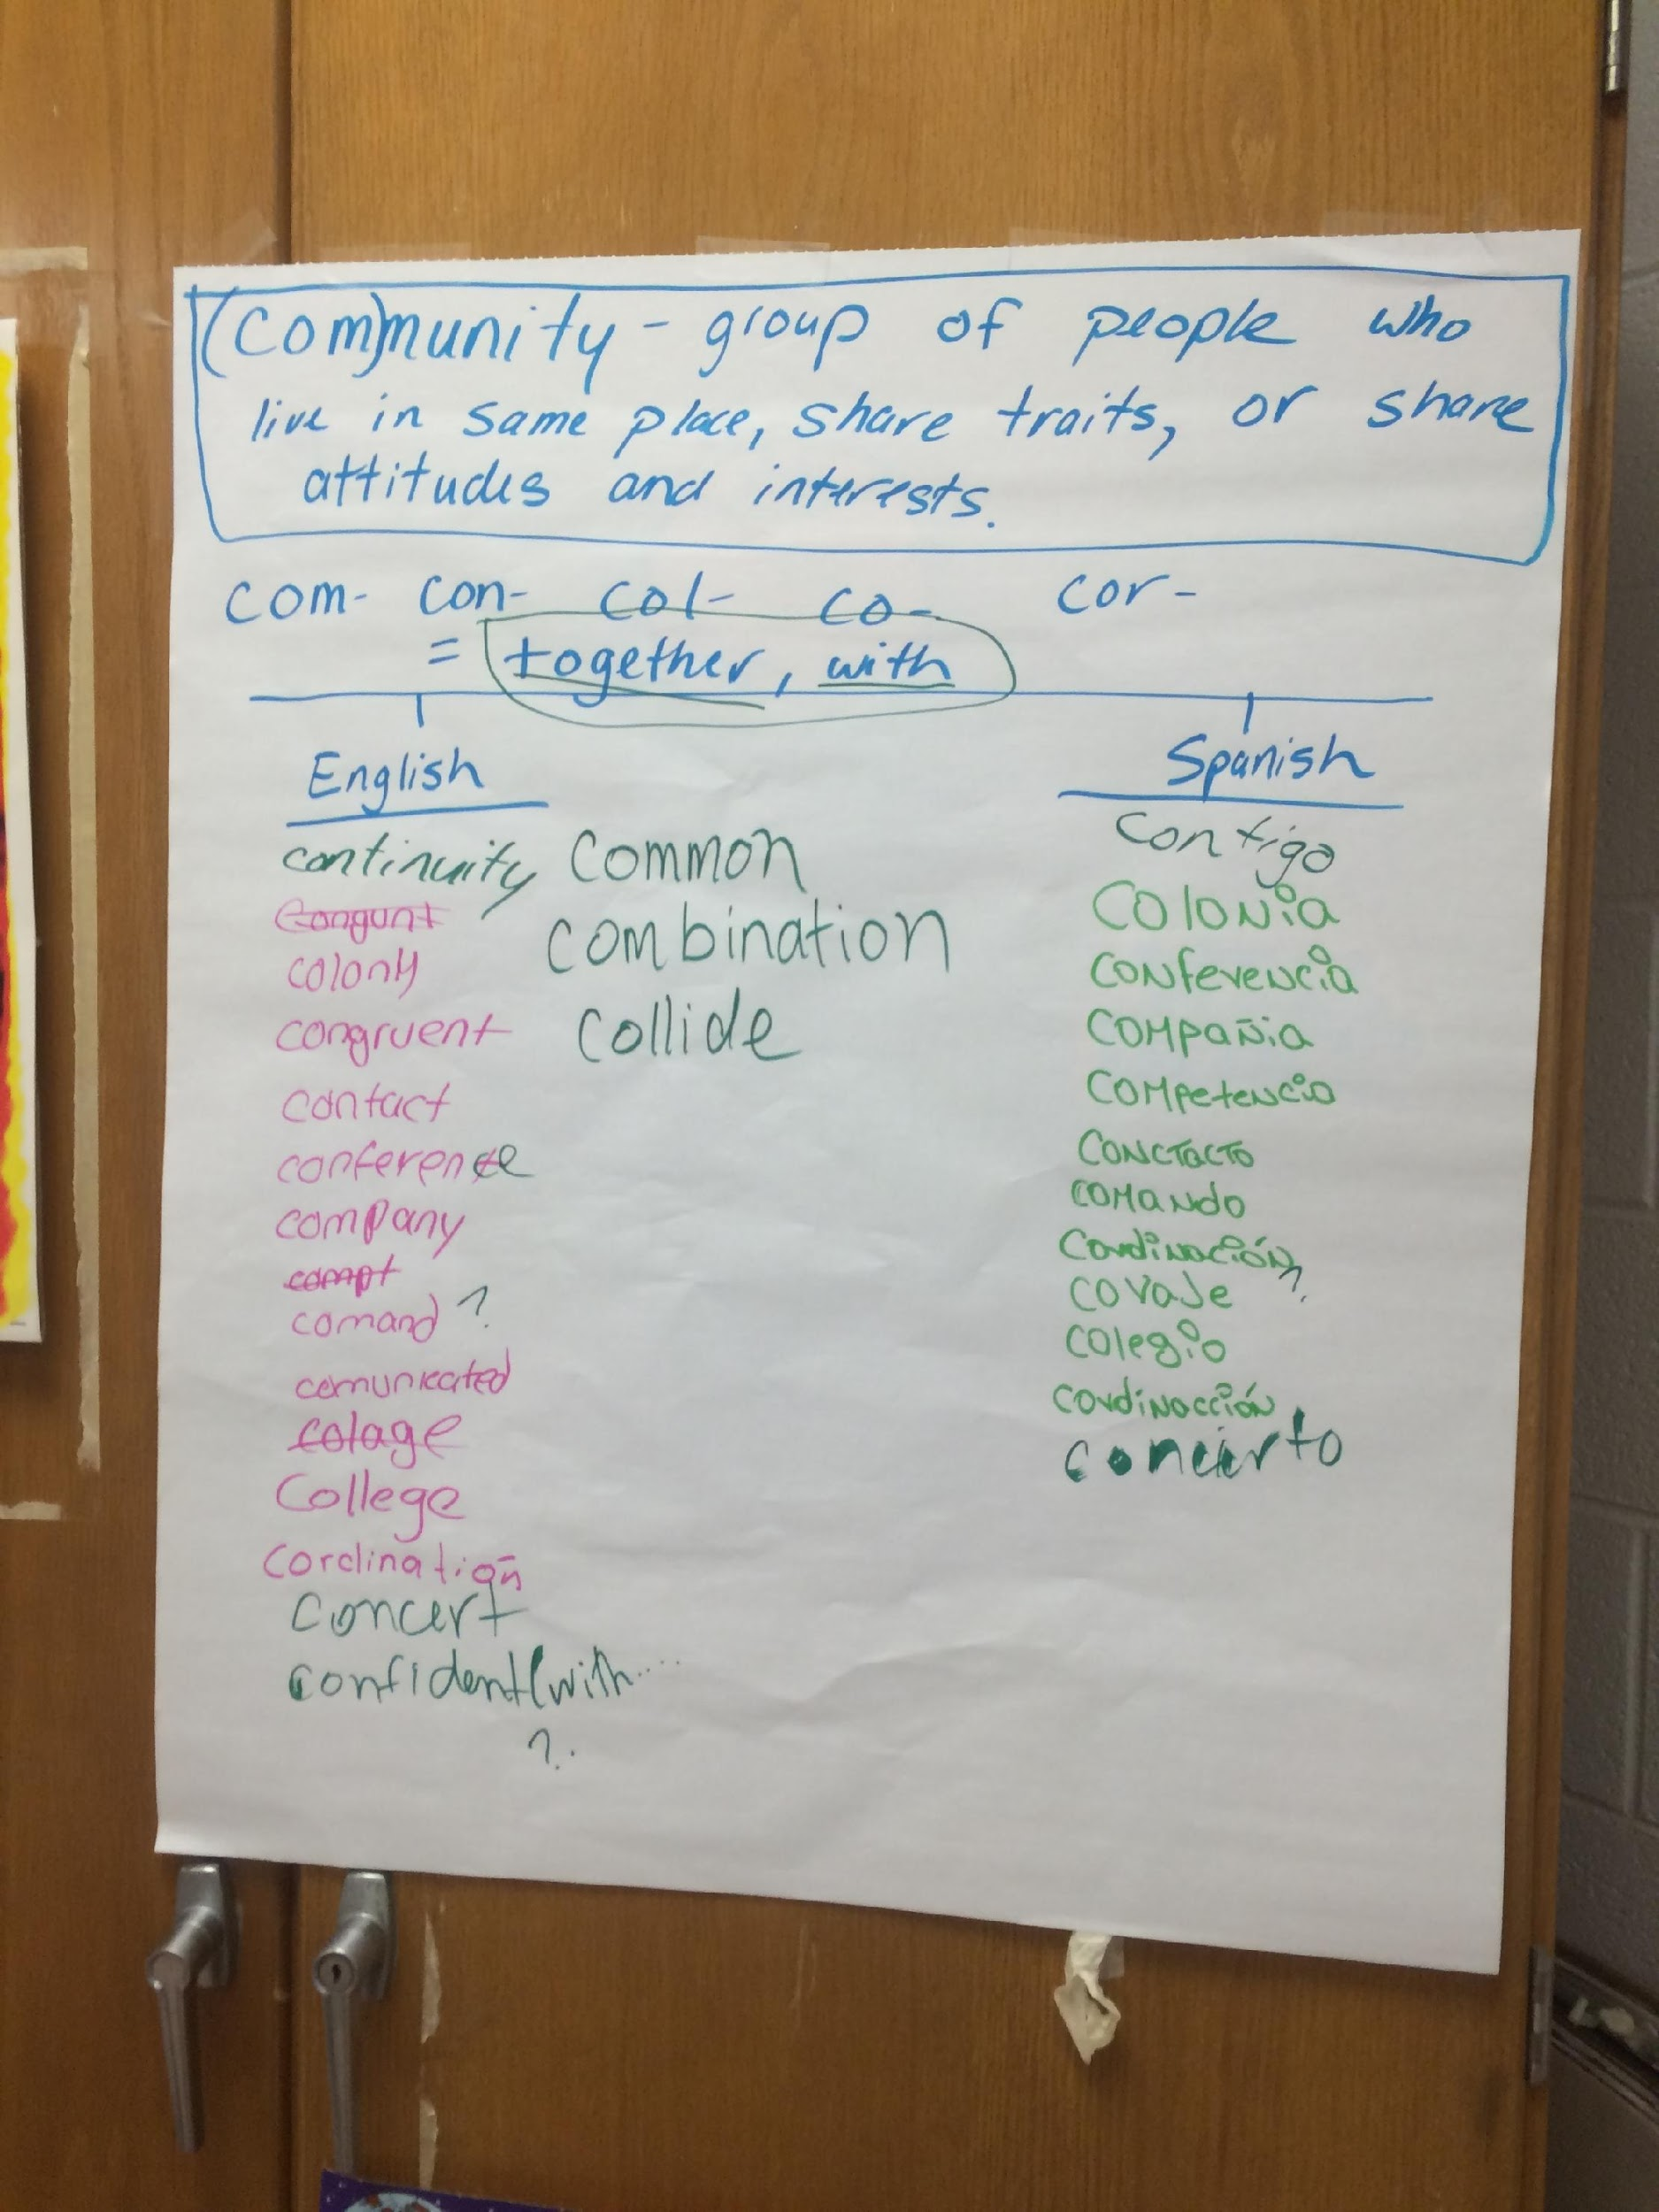 (com)munity - group of people who
live in same place, share traits, or share
attitudes and interests.
com- con- col- co- cor-
= together, with
English
continuity
Congunt
colony
congruent
contact
conference
company
compt
comand ?
comunicated
colage
College
Cordination
Concert
confident (with....
?.
Common
combination
collide
Spanish
Contigo
Colonia
Conferencia
Compañia
Competencia
Conctacto
Comando
Cordinación
Coraje ?.
Colegio
Cordinacción
concierto